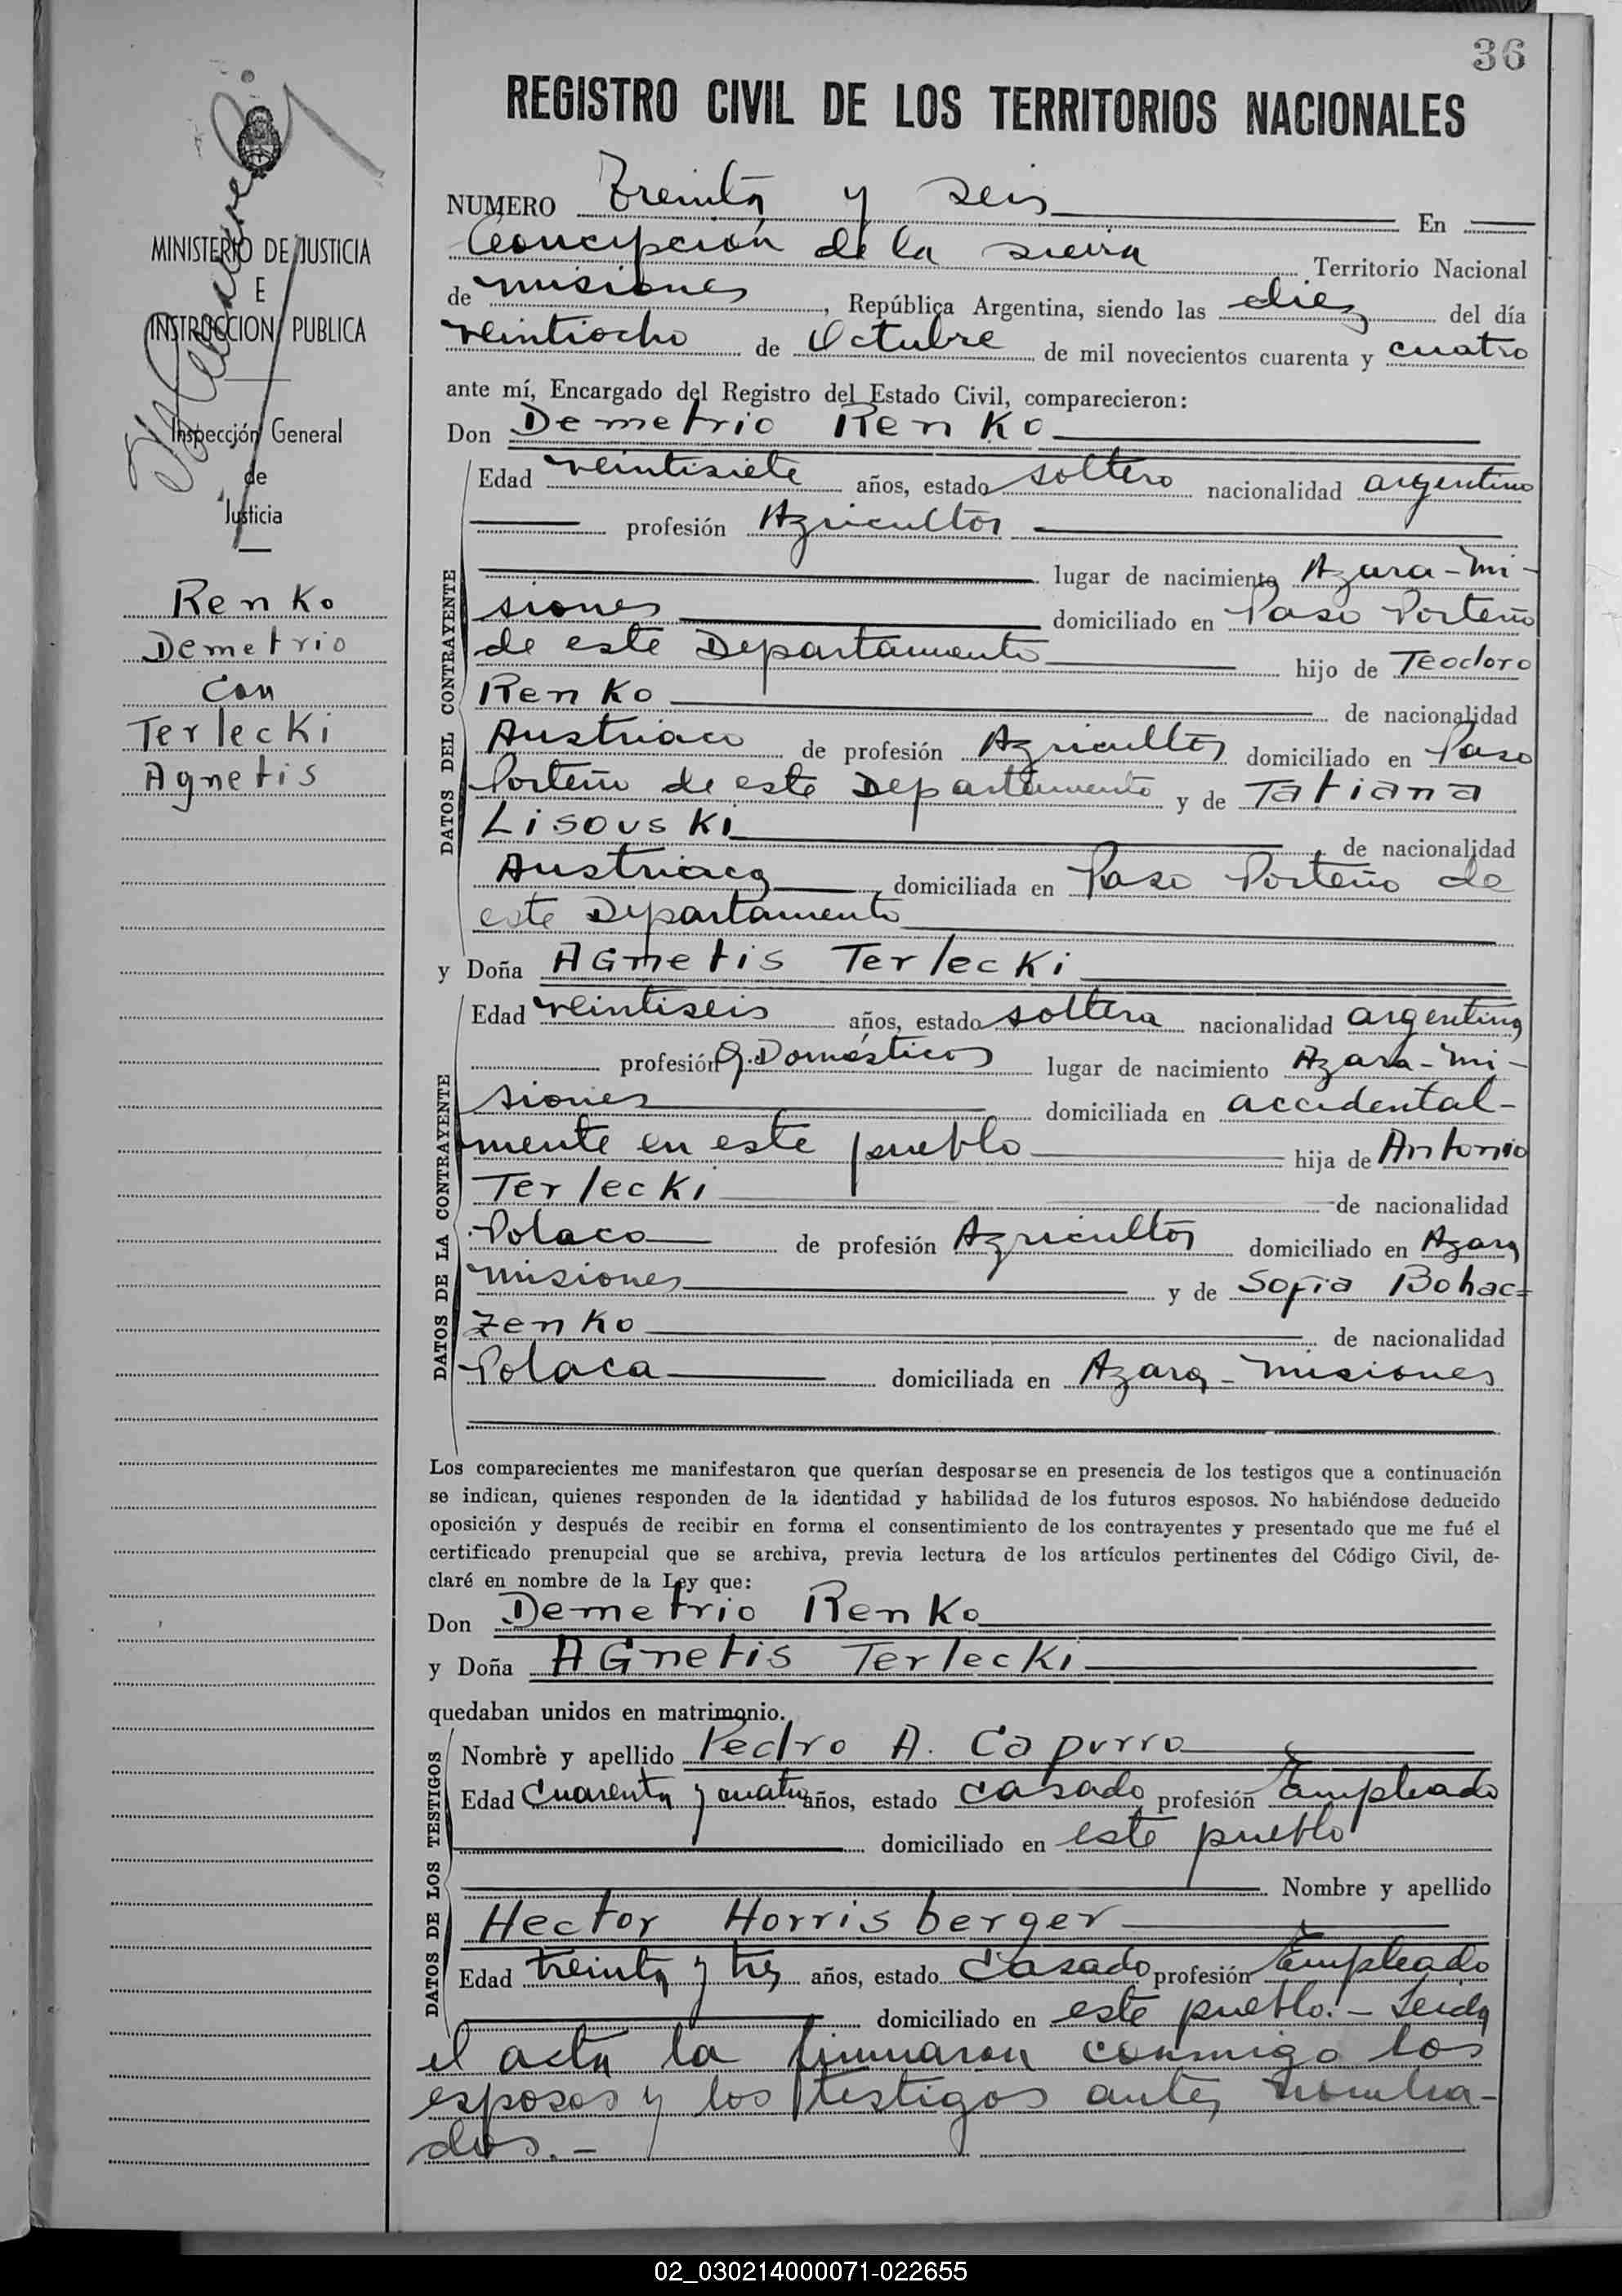 36
REGISTRO CIVIL DE LOS TERRITORIOS NACIONALES
MINISTERIO DE JUSTICIA
E
INSTRUCCION PUBLICA
Inspección General
de
Justicia
Renko
Demetrio
con
Terlecki
Agnetis
NUMERO Treinta y seis En
Concepción de la sierra Territorio Nacional
de misiones, República Argentina, siendo las diez del día
veintiocho de Octubre de mil novecientos cuarenta y cuatro
ante mí, Encargado del Registro del Estado Civil, comparecieron:
Don Demetrio Renko
DATOS DEL CONTRAYENTE
Edad veintisiete años, estado soltero nacionalidad argentino
profesión Agricultor
lugar de nacimiento Azara - Mi-
siones domiciliado en Paso Porteño
de este Departamento hijo de Teodoro
Renko de nacionalidad
Austriaco de profesión Agricultor domiciliado en Paso
Porteño de este Departamento y de Tatiana
Lisouski de nacionalidad
Austriaca domiciliada en Paso Porteño de
este Departamento
y Doña Agnetis Terlecki
DATOS DE LA CONTRAYENTE
Edad veintiseis años, estado soltera nacionalidad argentina
profesión Q. Domésticos lugar de nacimiento Azara - Mi-
siones domiciliada en accidental-
mente en este pueblo hija de Antonio
Terlecki de nacionalidad
Polaco de profesión Agricultor domiciliado en Azara
misiones y de Sofia Bohac=
zenko de nacionalidad
Polaca domiciliada en Azara - Misiones
Los comparecientes me manifestaron que querían desposarse en presencia de los testigos que a continuación
se indican, quienes responden de la identidad y habilidad de los futuros esposos. No habiéndose deducido
oposición y después de recibir en forma el consentimiento de los contrayentes y presentado que me fué el
certificado prenupcial que se archiva, previa lectura de los artículos pertinentes del Código Civil, de-
claré en nombre de la Ley que:
Don Demetrio Renko
y Doña Agnetis Terlecki
quedaban unidos en matrimonio.
DATOS DE LOS TESTIGOS
Nombre y apellido Pedro A. Capurro
Edad Cuarenta y cuatro años, estado casado profesión Empleado
domiciliado en este pueblo
Nombre y apellido
Hector Horrisberger
Edad treinta y tres años, estado Casado profesión Empleado
domiciliado en este pueblo. - Leida
el acta la firmaron conmigo los
esposos y los testigos antes nombra-
dos. -
02_030214000071-022655